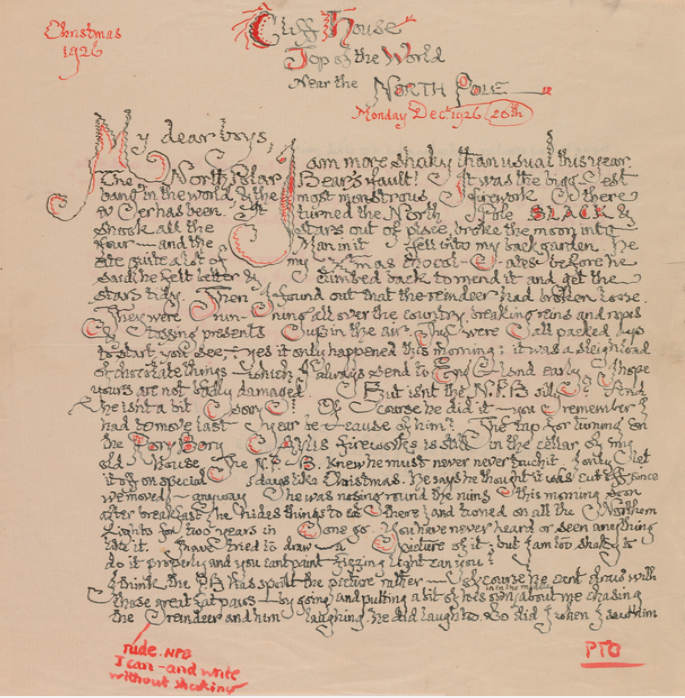 Christmas
1926
Cliff House
Top of the World
Near the NORTH POLE
Monday Dec: 1926 20th
My dear boys,
I am more shaky than usual this year.
The North Polar Bear's fault! It was the bigg-est
bang in the world, & the most monstrous firework there
ever has been. It turned the North Pole BLACK &
shook all the stars out of place, broke the moon into
four — and the Man in it fell into my back garden. He
ate quite a lot of my Xmas chocol-ates before he
said he felt better & climbed back to mend it and get the
stars tidy. Then I found out that the reindeer had broken loose.
They were run-ning all over the country, breaking reins and ropes
& tossing presents up in the air. They were all packed up
to start, you see, — yes it only happened this morning: it was a sleighload
of chocolate things — which I always send to England early. I hope
yours are not badly damaged. But isn't the N.P.B silly? And
he isn't a bit sorry! Of course he did it — you remember I
had to move last year be-cause of him? The tap for turning on
the Rory Bory Aylis fireworks is still in the cellar of my
old house. The N.P.B. knew he must never never touch it. I only let
it off on special days like Christmas. He says he thought it was cut off since
we moved — anyway he was nosing round the ruins this morning soon
after breakfast (he hides things to eat there) and turned on all the Northern
Lights for two years in one go. You have never heard or seen anything
like it. I have tried to draw a picture of it; but I am too shaky to
do it properly and you can't paint fizzing light can you?
I think the PB has spoilt the picture rather — of course he can't draw with
those great fat paws — by going and putting a bit of his own in the middle about me chasing
the reindeer and him laughing. He did laugh too. So did I when I saw him
rude. NPB
I can - and write
without shaking
PTO